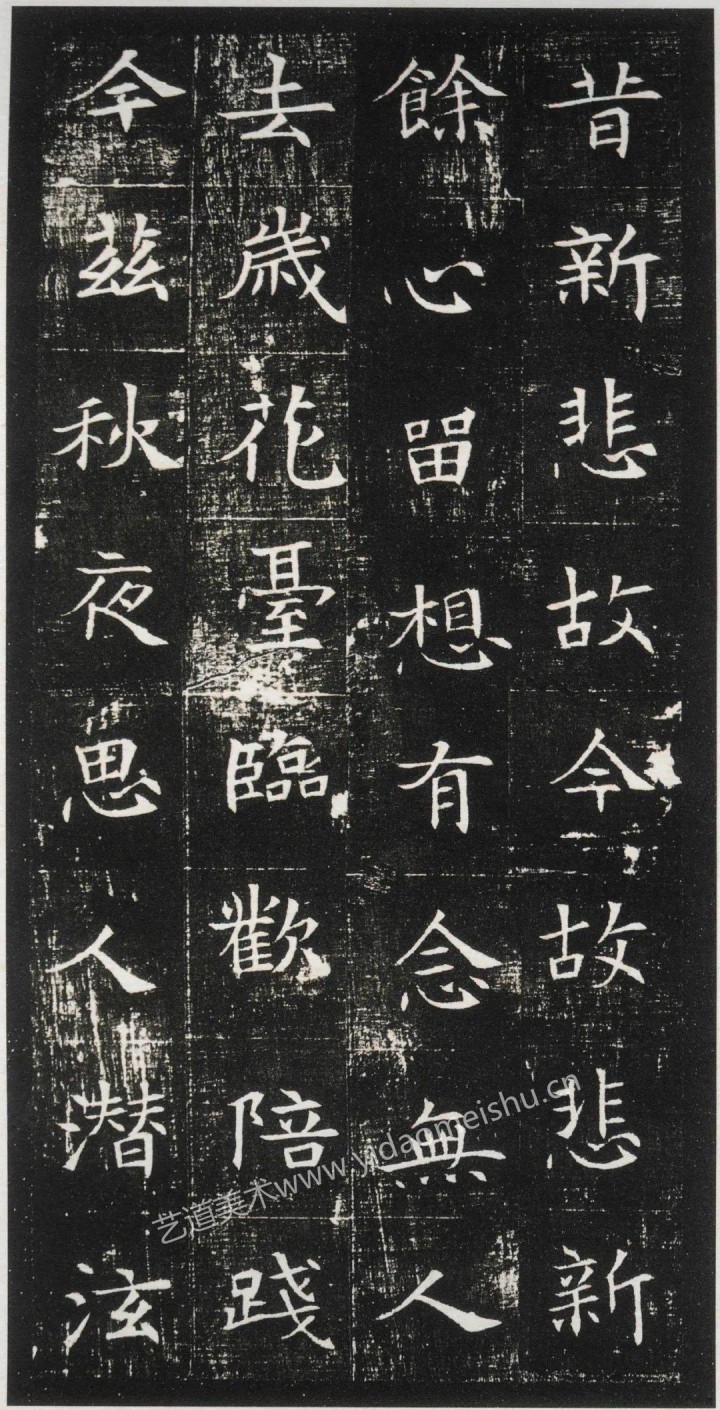 昔新悲故今故悲新
餘心留想有念無人
去歲花臺臨歡陪踐
今茲秋夜思人潛泫
艺道美术www.yidaomeishu.cn